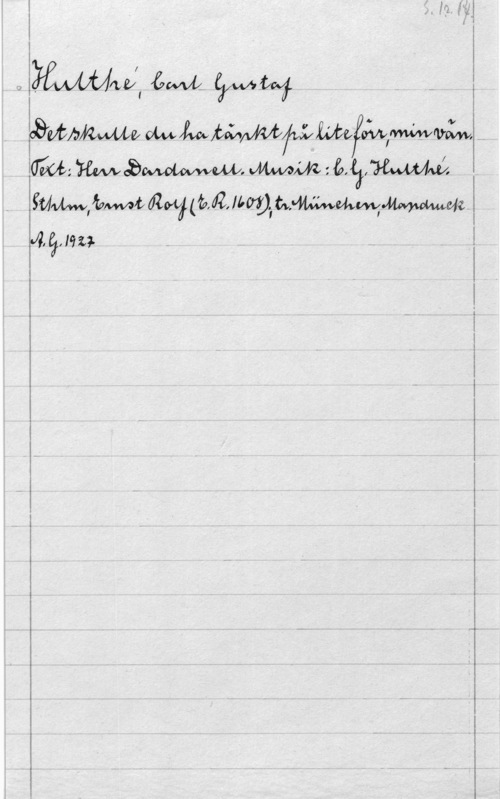 S. 12. 14.
Hulthé, Carl Gustaf
Det skulle du ha tänkt på lite förr, min vän.
Text: Herr Dardanell. Musik: C.G. Hulthé.
Sthlm, Ernst Rolf (E.R. 1608), tr. München, Mandruck
A.G. 1927